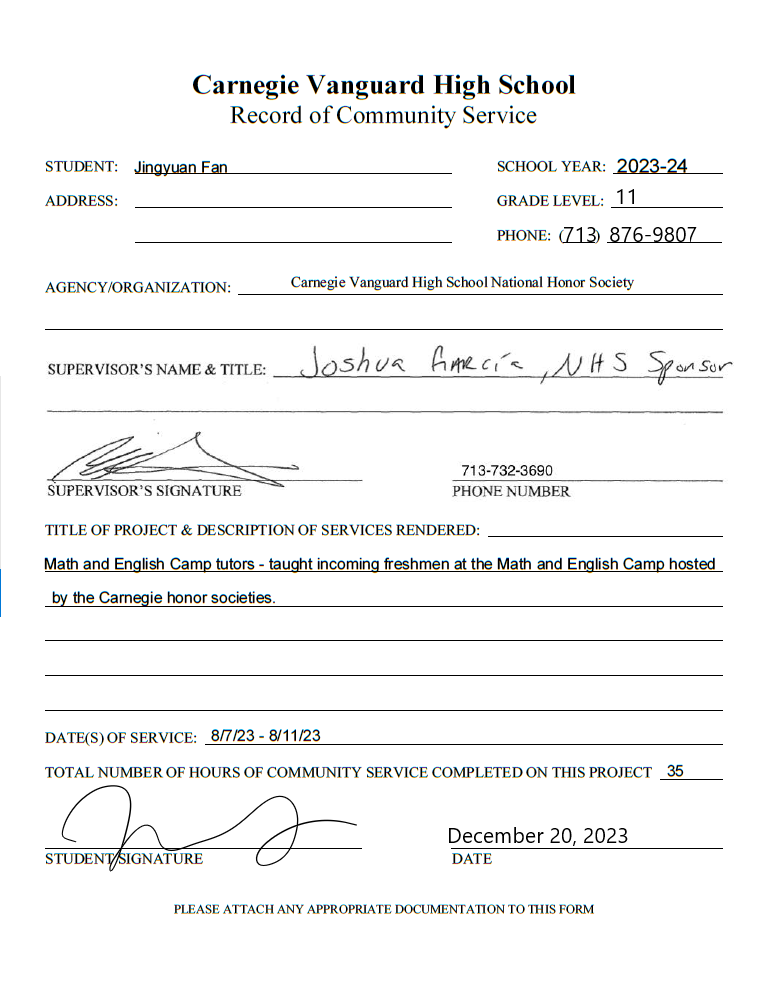 Carnegie Vanguard High School
Record of Community Service
STUDENT: Jingyuan Fan SCHOOL YEAR: 2023-24
ADDRESS: GRADE LEVEL: 11
PHONE: (713) 876-9807
AGENCY/ORGANIZATION: Carnegie Vanguard High School National Honor Society
SUPERVISOR'S NAME & TITLE: Joshua García, NHS Sponsor
713-732-3690
SUPERVISOR'S SIGNATURE PHONE NUMBER
TITLE OF PROJECT & DESCRIPTION OF SERVICES RENDERED:
Math and English Camp tutors - taught incoming freshmen at the Math and English Camp hosted
by the Carnegie honor societies.
DATE(S) OF SERVICE: 8/7/23 - 8/11/23
TOTAL NUMBER OF HOURS OF COMMUNITY SERVICE COMPLETED ON THIS PROJECT 35
December 20, 2023
STUDENT SIGNATURE DATE
PLEASE ATTACH ANY APPROPRIATE DOCUMENTATION TO THIS FORM